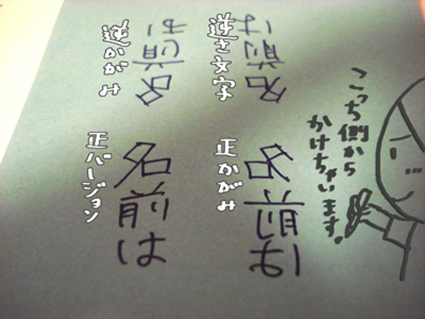 こっち側から
かけちゃいます。
逆さ文字
名前は
正かがみ
名前は
逆かがみ
名前は
正バージョン
名前は